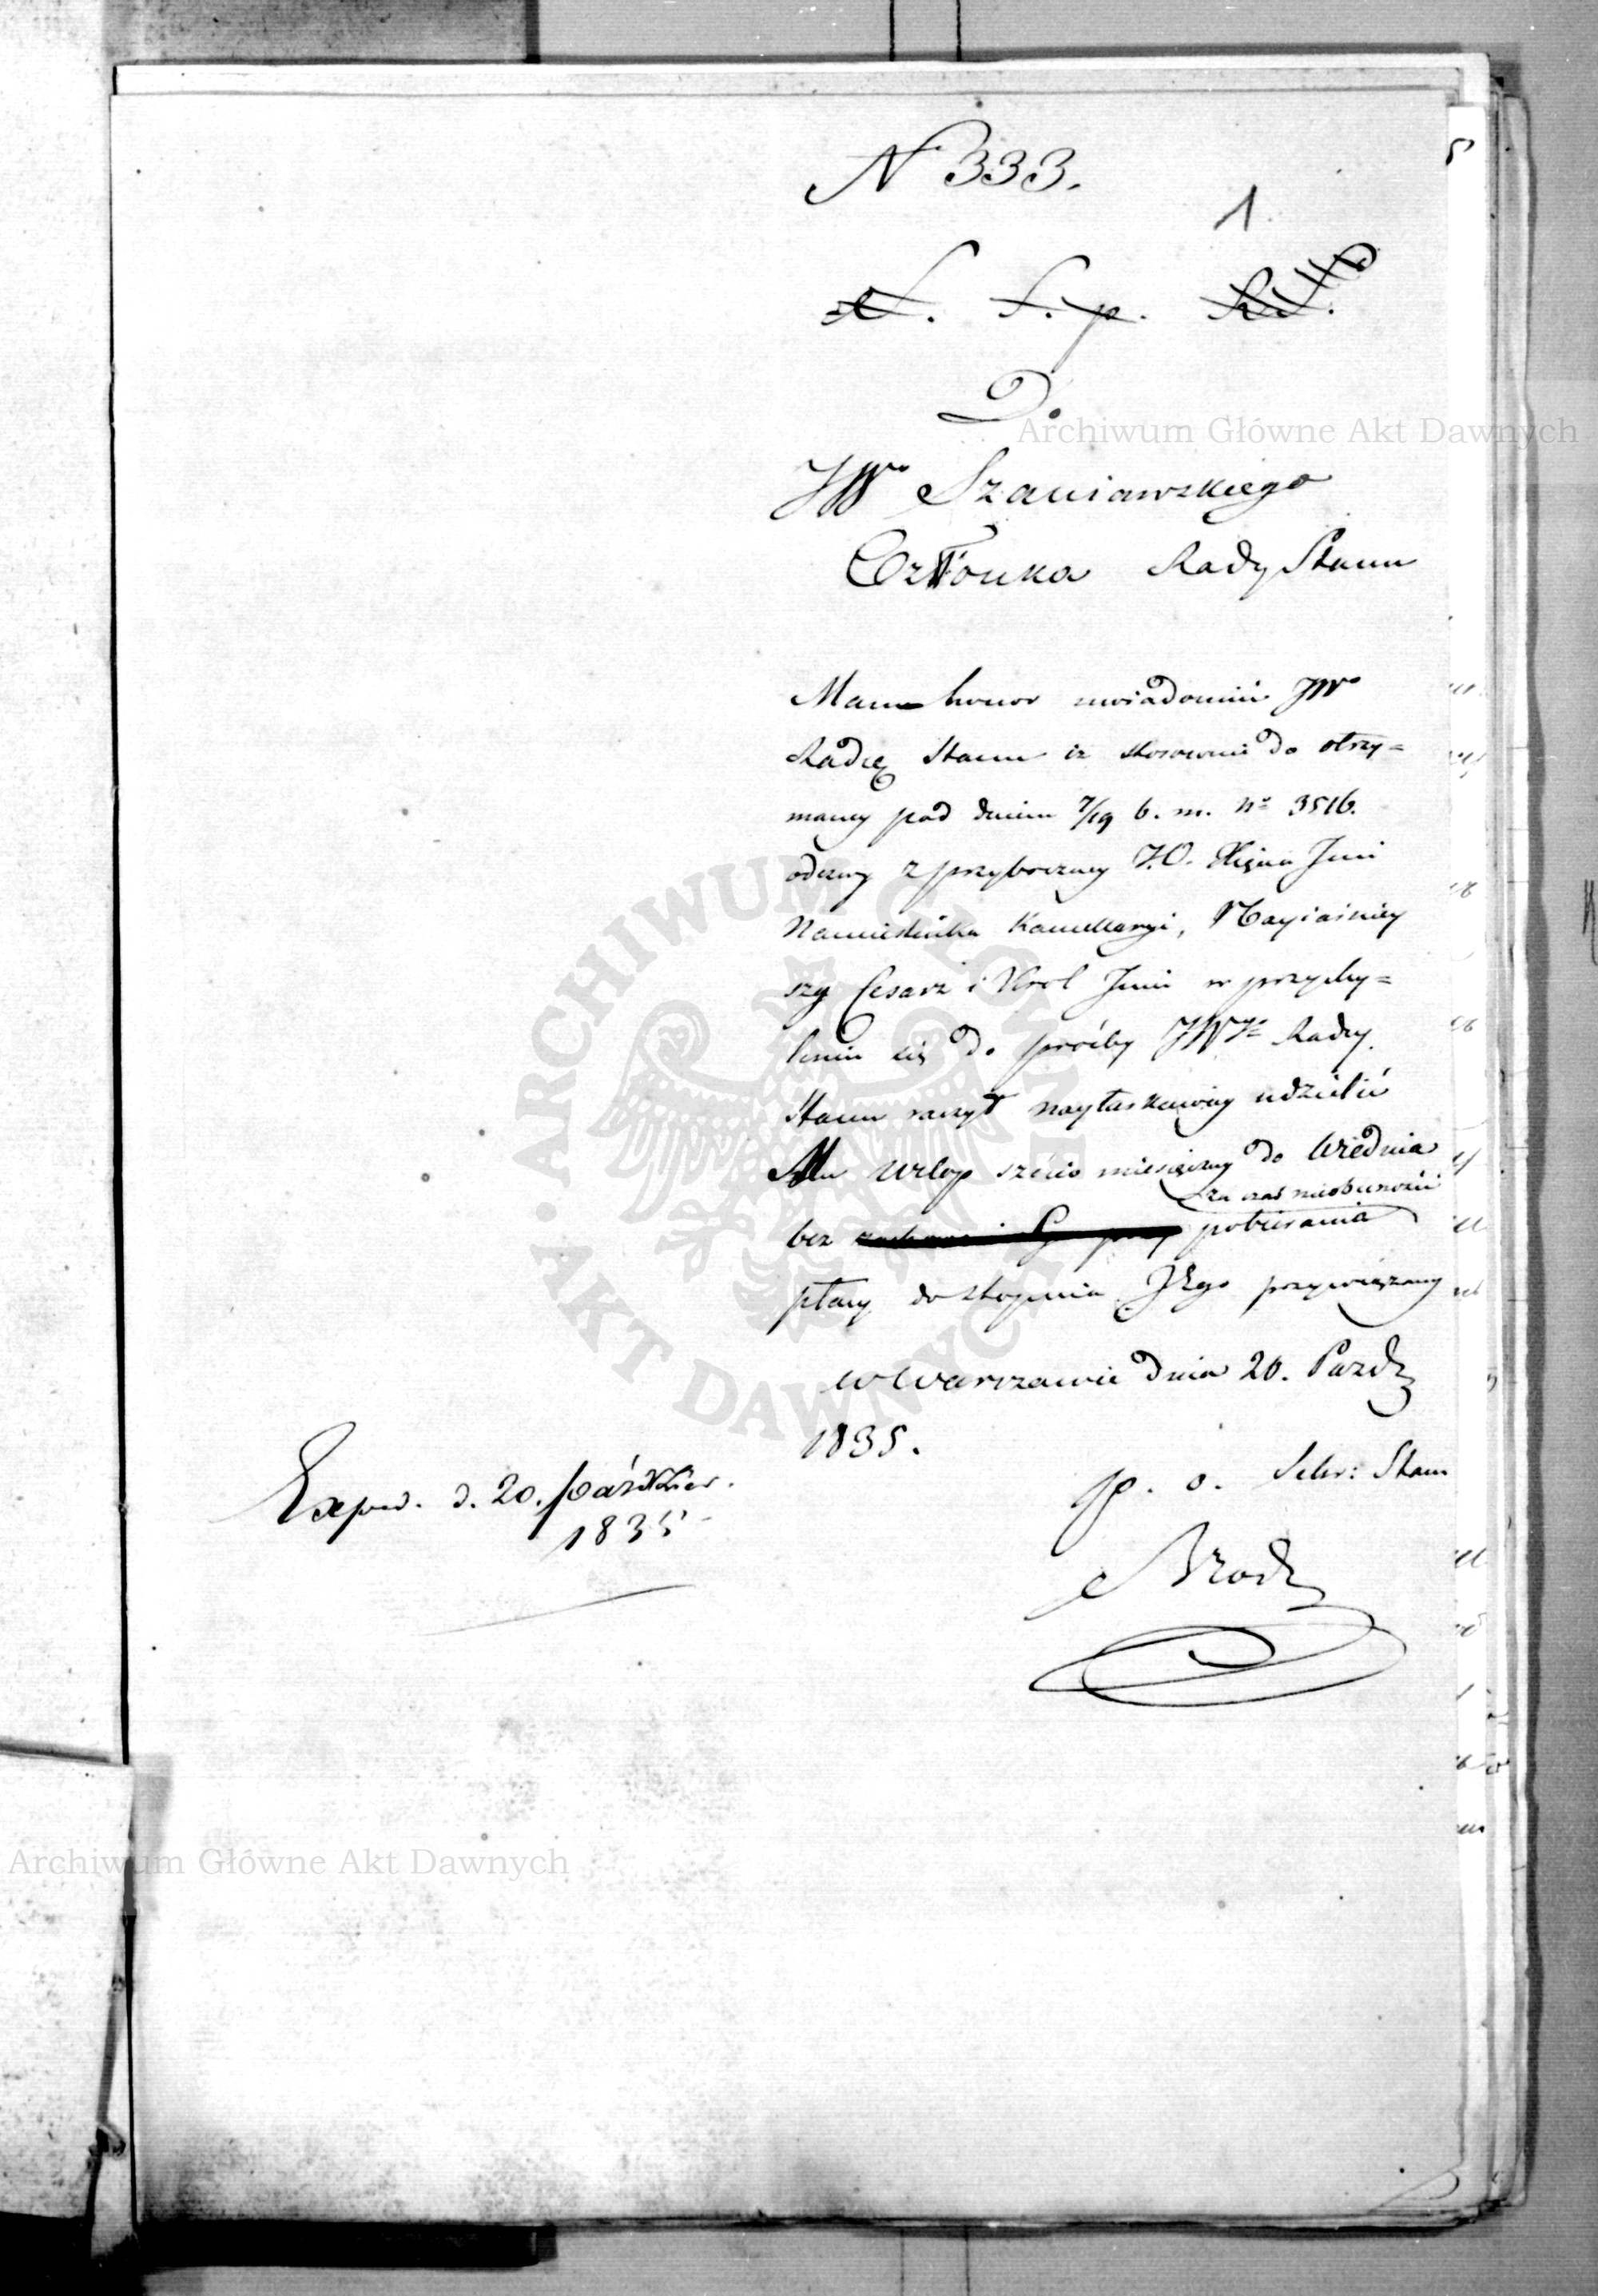 N 333.
5
1
S. p.
D.
Archiwum Główne Akt Dawnych
JWo Szaniawskiego
Członka Rady Stanu
Mam honor uwiadomić JWo
Radcę Stanu iż stosownie do otrzy=
maney pod dniem 7/19 b. m. No 3516.
odezwy z przyboczney J.O. Xięcia Jmci
Namiestnika Kancellaryi, Nayiaśniey
szy Cesarz i Król Jmć w przychy=
leniu się do prośby JWgo Radcy
Stanu raczył nayłaskawiey udzielić
Mu urlop sześcio miesięczny do Wiednia
za czas nieobecności
bez pobierania
płacy do stopnia Jego przywiązaney
w Warszawie dnia 20. Pazdz
1835.
p. o. Sekr: Stanu
Exped. d. 20. paźdZier.
1835
ARCHIWUM GŁÓWNE AKT DAWNYCH
Archiwum Główne Akt Dawnych